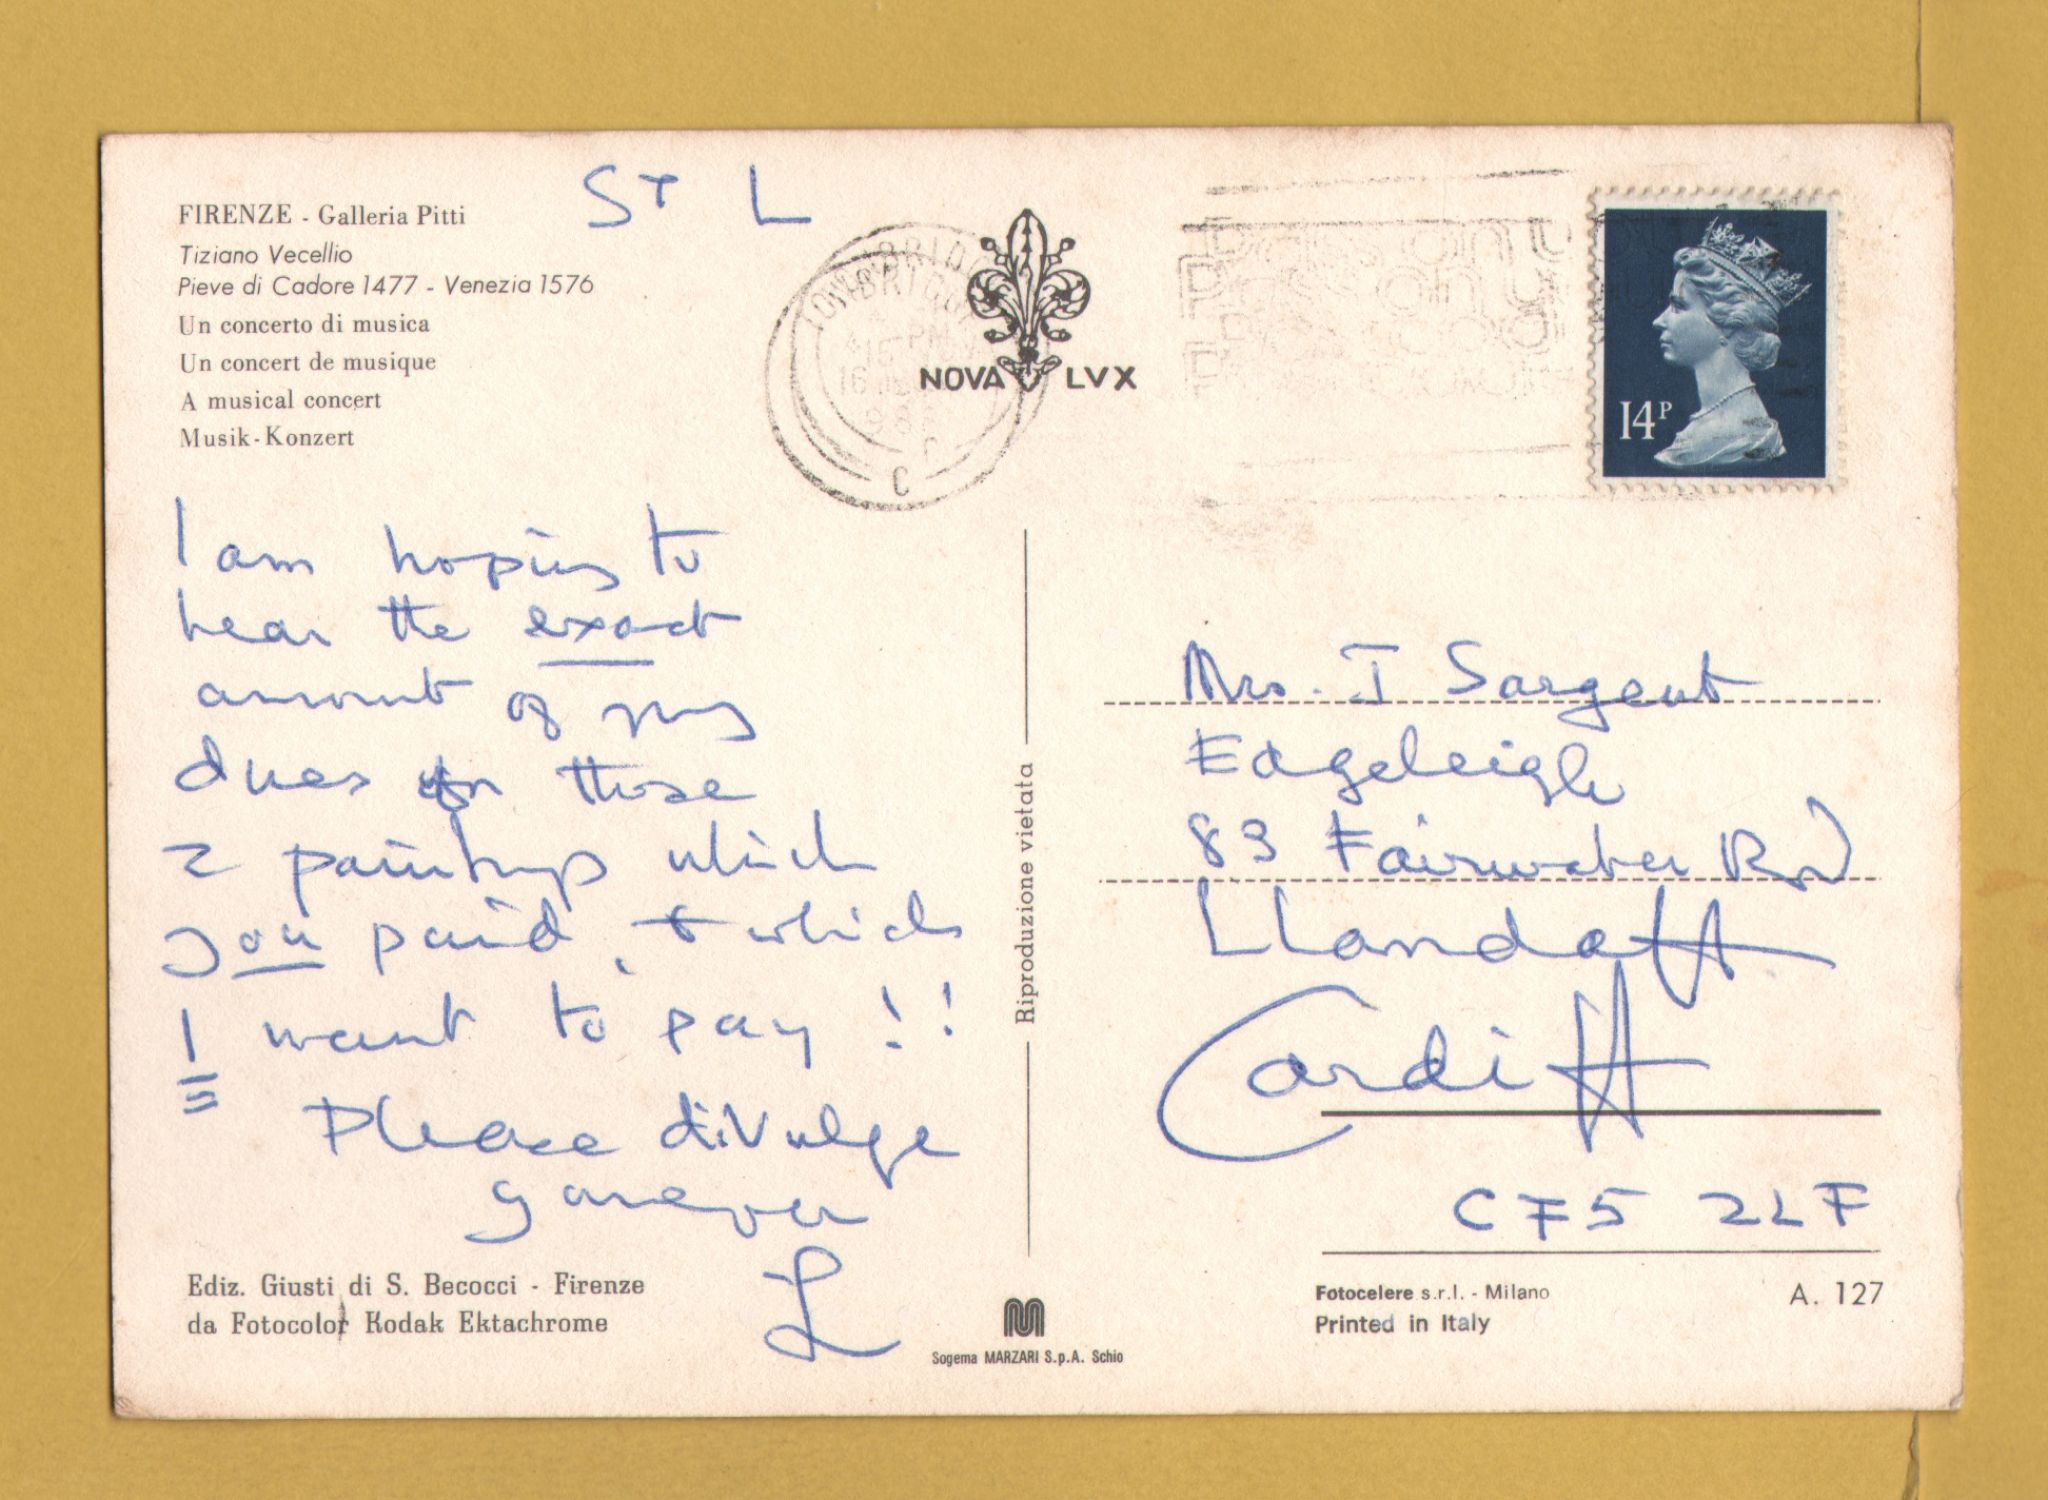 St L
FIRENZE - Galleria Pitti
Tiziano Vecellio
Pieve di Cadore 1477 - Venezia 1576
Un concerto di musica
Un concert de musique
A musical concert
Musik-Konzert
TONBRIDGE
C
NOVA LVX
14P
I am hoping to
hear the exact
amount of my
dues on those
2 paintings which
you paid, & which
I want to pay!!
Please divulge
L
Ediz. Giusti di S. Becocci - Firenze
da Fotocolor Kodak Ektachrome
Riproduzione vietata
Sogema MARZARI S.p.A. Schio
Mrs. I Sargent
Edgeleigh
83 Fairwater Rd
Llandaff
Cardiff
CF5 2LF
Fotocelere s.r.l. - Milano
Printed in Italy
A. 127